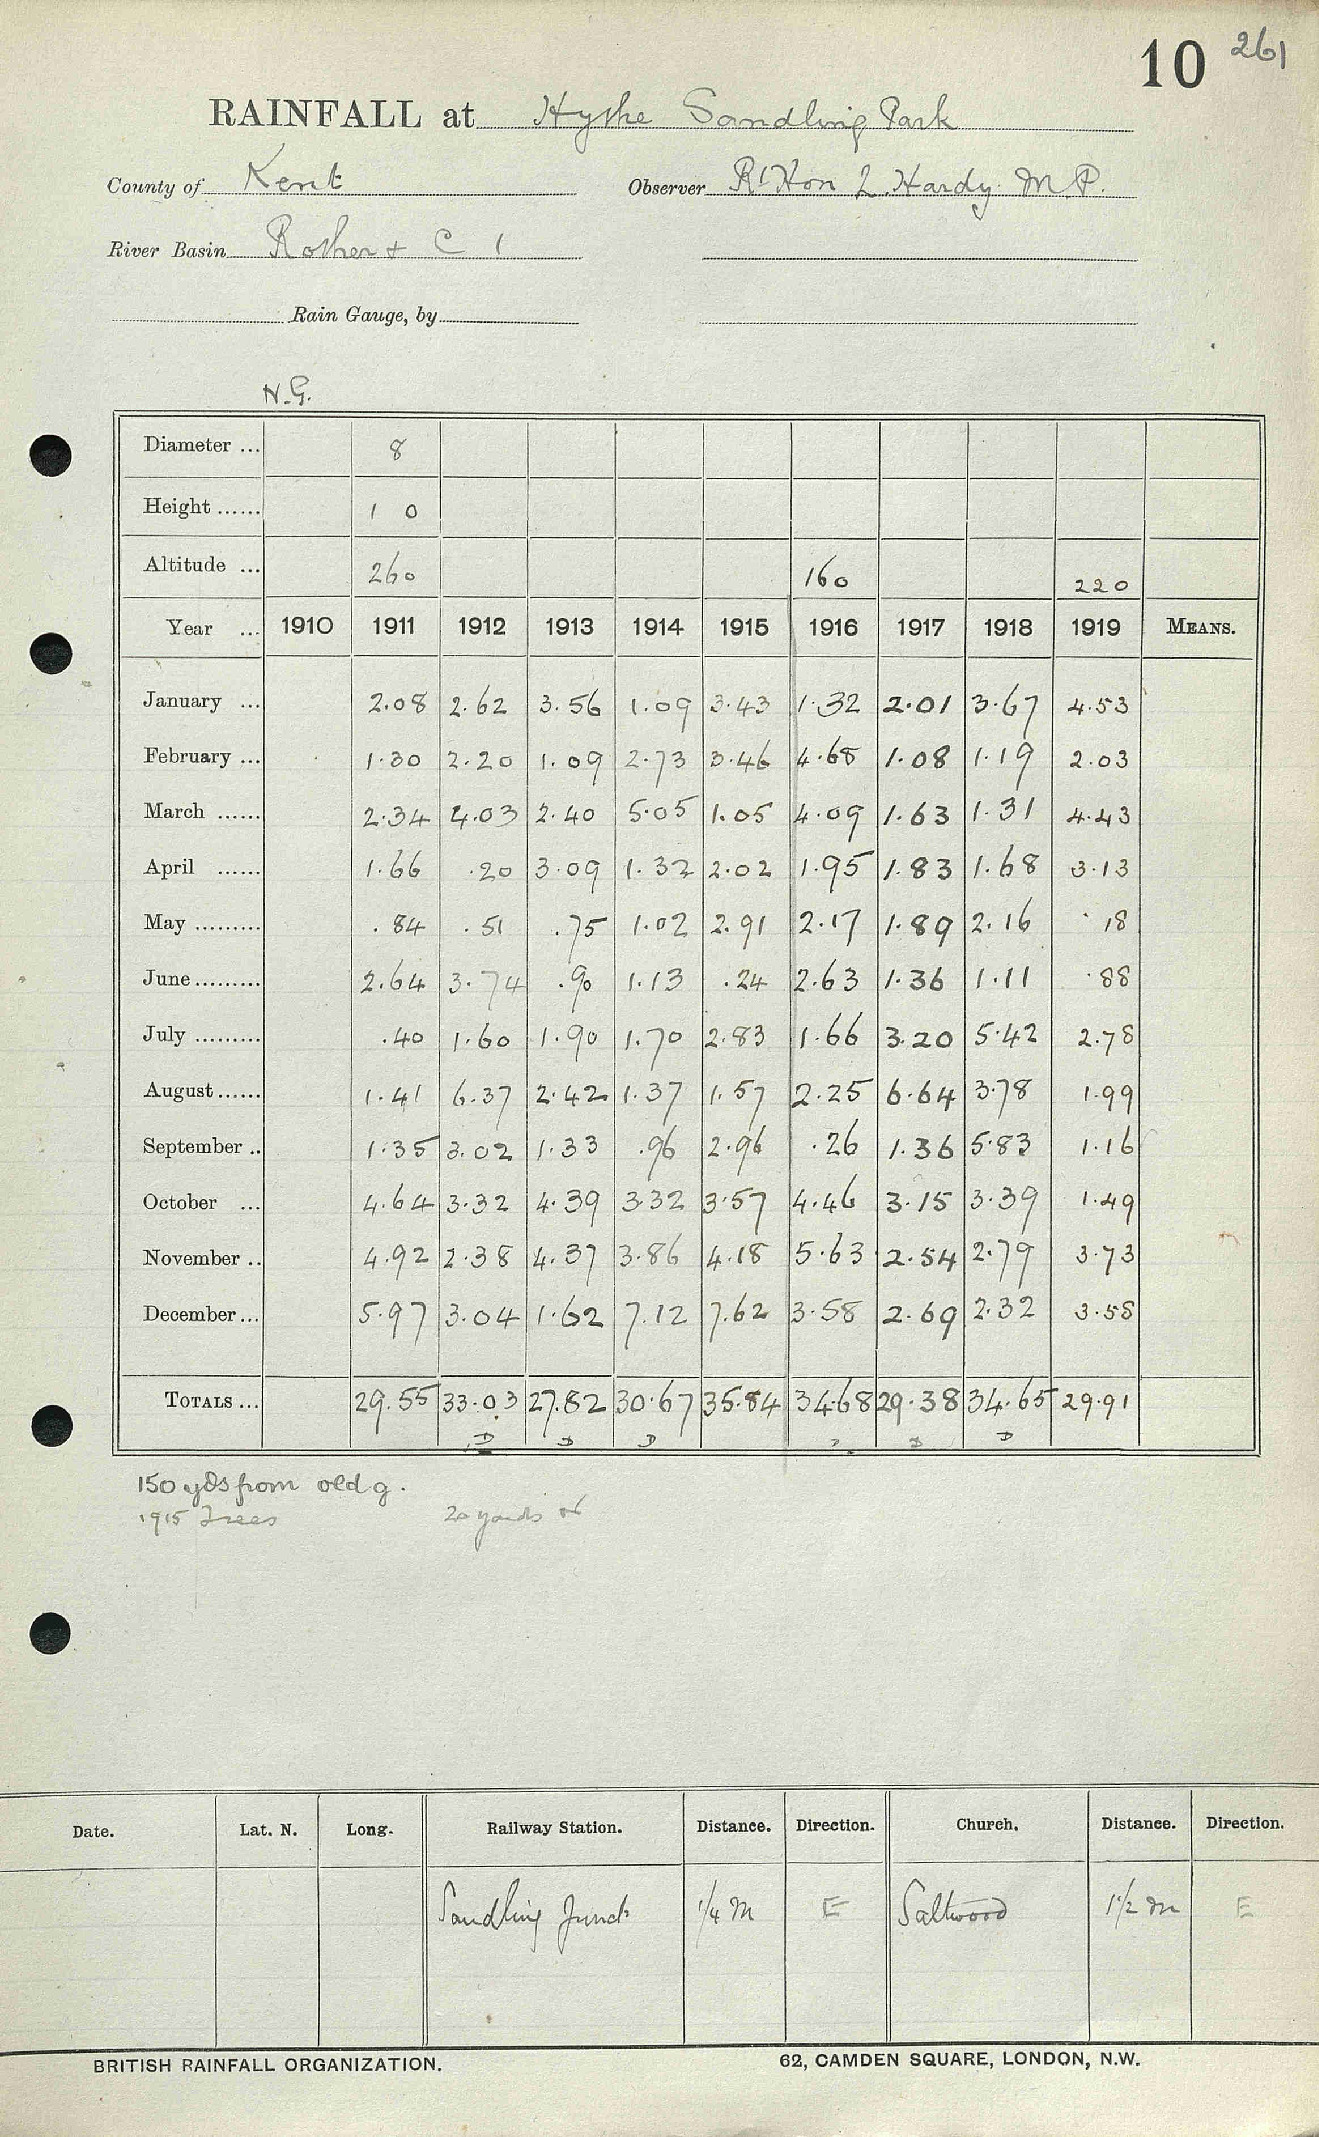 10 261
RAINFALL at Hythe Sandling Park
County of Kent Observer Rt Hon L. Hardy M.P.
River Basin Rother + C 1
Rain Gauge, by
N.G.
Diameter ... 8
Height ...... 1 0
Altitude ... 260 160 220
Year ... 1910 1911 1912 1913 1914 1915 1916 1917 1918 1919 MEANS.
January ... 2.08 2.62 3.56 1.09 3.43 1.32 2.01 3.67 4.53
February ... 1.30 2.20 1.09 2.73 3.46 4.68 1.08 1.19 2.03
March ...... 2.34 4.03 2.40 5.05 1.05 4.09 1.63 1.31 4.43
April ...... 1.66 .20 3.09 1.32 2.02 1.95 1.83 1.68 3.13
May ......... .84 .51 .75 1.02 2.91 2.17 1.89 2.16 .18
June ......... 2.64 3.74 .90 1.13 .24 2.63 1.36 1.11 .88
July ......... .40 1.60 1.90 1.70 2.83 1.66 3.20 5.42 2.78
August ...... 1.41 6.37 2.42 1.37 1.57 2.25 6.64 3.78 1.99
September .. 1.35 3.02 1.33 .96 2.96 .26 1.36 5.83 1.16
October ... 4.64 3.32 4.39 3.32 3.57 4.46 3.15 3.39 1.49
November .. 4.92 2.38 4.37 3.86 4.18 5.63 2.54 2.79 3.73
December ... 5.97 3.04 1.62 7.12 7.62 3.58 2.69 2.32 3.58
TOTALS ... 29.55 33.03 27.82 30.67 35.84 34.68 29.38 34.65 29.91
D D D D D
150 yds from old g.
1915 Trees 20 yards
Date. Lat. N. Long. Railway Station. Distance. Direction. Church. Distance. Direction.
Sandling Junct 1/4 M E Saltwood 1 1/2 m E
BRITISH RAINFALL ORGANIZATION. 62, CAMDEN SQUARE, LONDON, N.W.